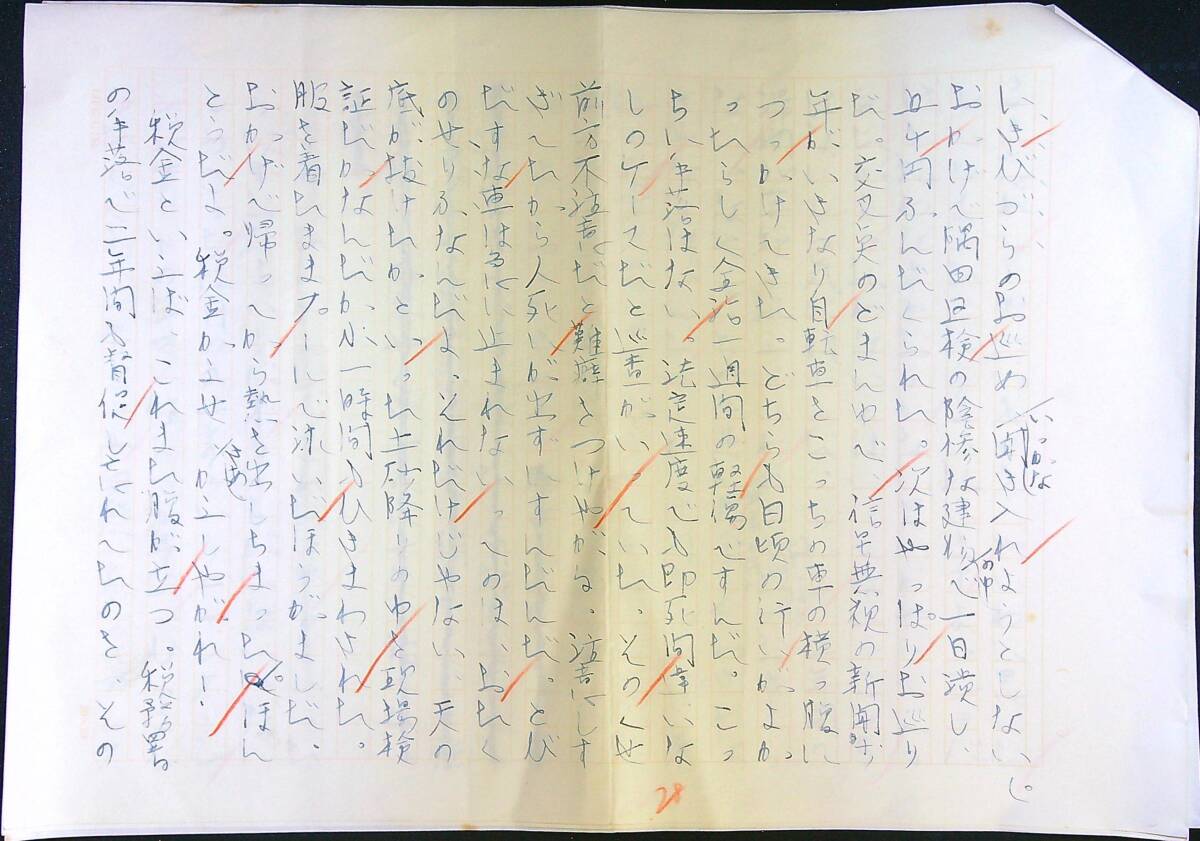 いきびつらのお巡め、聞き入れようとしない。
いっかな
おかげで隅田区検の陰惨な建物の中で一日潰し、
五千円ふんだくられた。次はやっぱりお巡り
だ。交叉点のどまん中で、信号無視の新聞少
年がいきなり自転車をこっちの車の横っ腹に
つっかけてきた。どちらも日頃の行いがよか
ったらしく全治一週間の軽傷ですんだ。こっ
ちに手落はない。法定速度でも即死間違いな
しのケースだと巡査がいっていた、そのくせ
前方不注意だと難癖をつけやがる。注意しす
ぎてたから人死にが出ずにすんだんだ。とび
だすな車は急に止まれないってのは、おたく
のせりふなんだよ。それだけじゃない、天の
底が抜けたかといった土砂降りの中を現場検
証だかなんだか、小一時間もひきまわされた。
服を着たままプールで泳いだほうがましだ。
おかげで帰ってから熱を出しちまった。ほん
とうだよ。税金かえせ、かえしやがれ!
税金といえば、これまた腹が立つ。税務署
の手落で二年間も督促しといれてたのさ、その
28